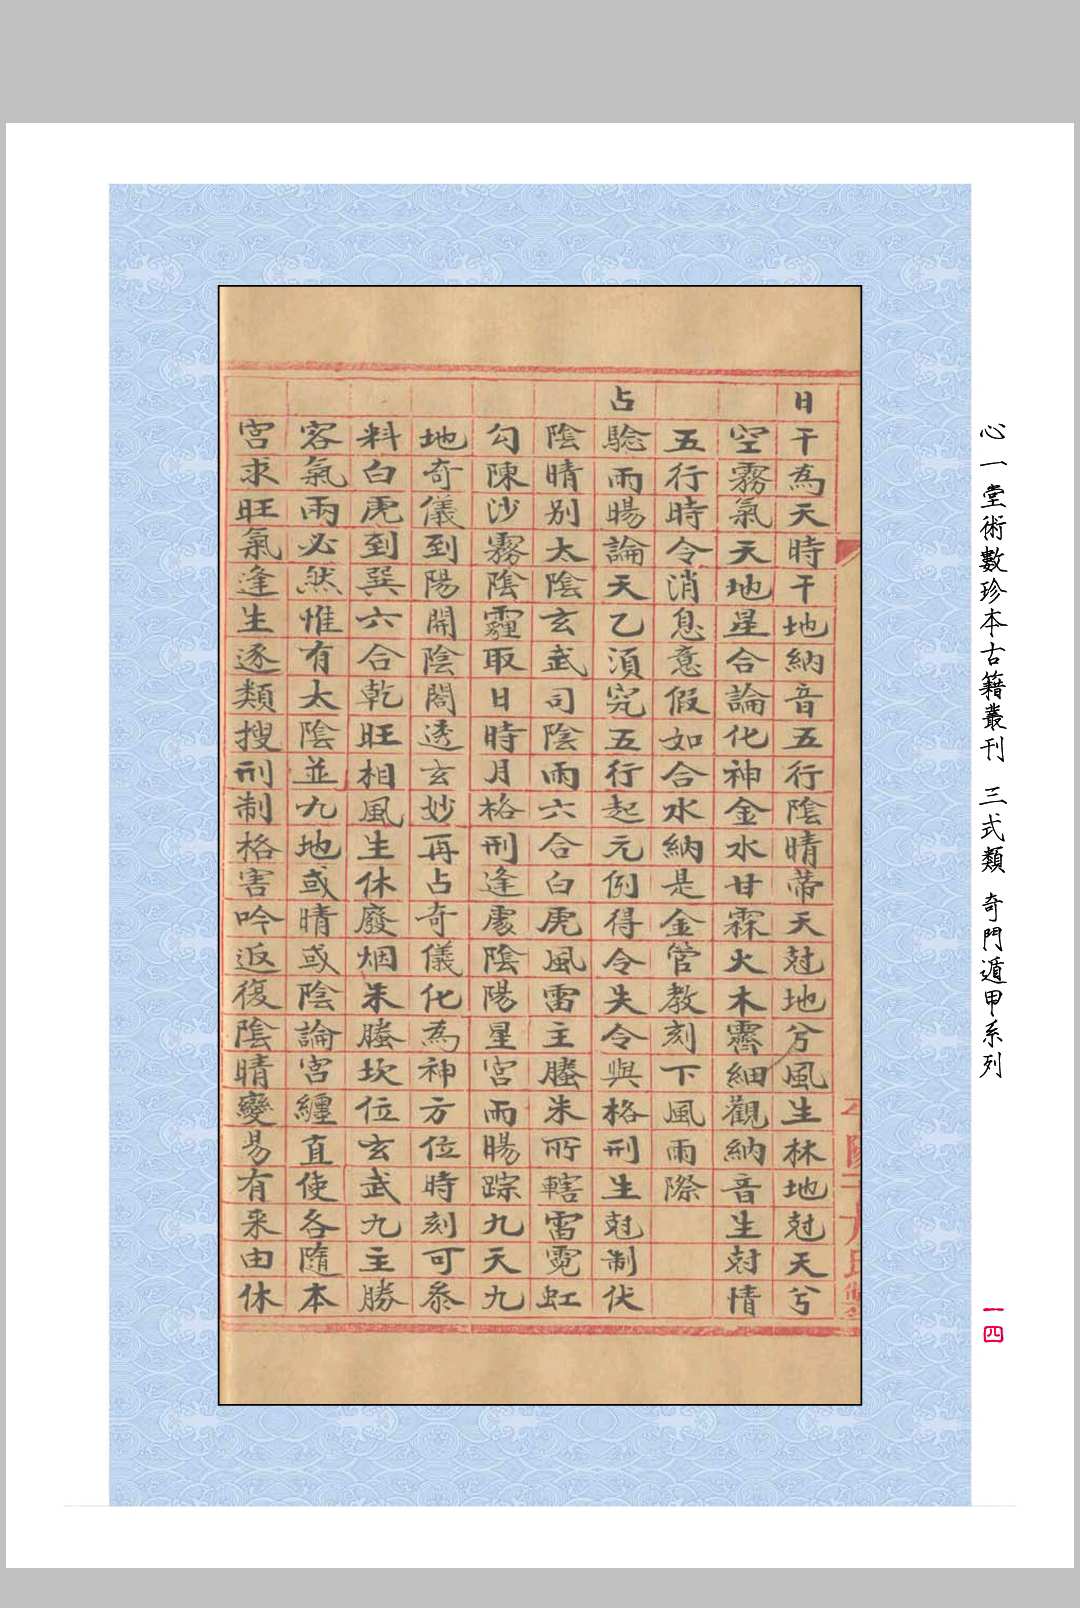 日干為天時干地納音五行陰晴蒂天尅地兮風生林地尅天兮
空霧氣天地星合論化神金水甘霖火木霽細觀納音生尅情
五行時令消息意假如合水納是金管教刻下風雨際
占驗雨暘論天乙須究五行起元例得令失令與格刑生尅制伏
陰晴別太陰玄武司陰雨六合白虎風雷主螣朱所轄雷霓虹
勾陳沙霧陰霾取日時月格刑逢處陰陽星宮雨暘踪九天九
地奇儀到陽開陰閤透玄妙再占奇儀化為神方位時刻可參
料白虎到巽六合乾旺相風生休廢烟朱螣坎位玄武九主勝
客氣兩必然惟有太陰並九地或晴或陰論宮纏直使各隨本
宮求旺氣逢生逐類搜刑制格害吟返復陰晴變易有來由休
心一堂術數珍本古籍叢刊 三式類 奇門遁甲系列
一四